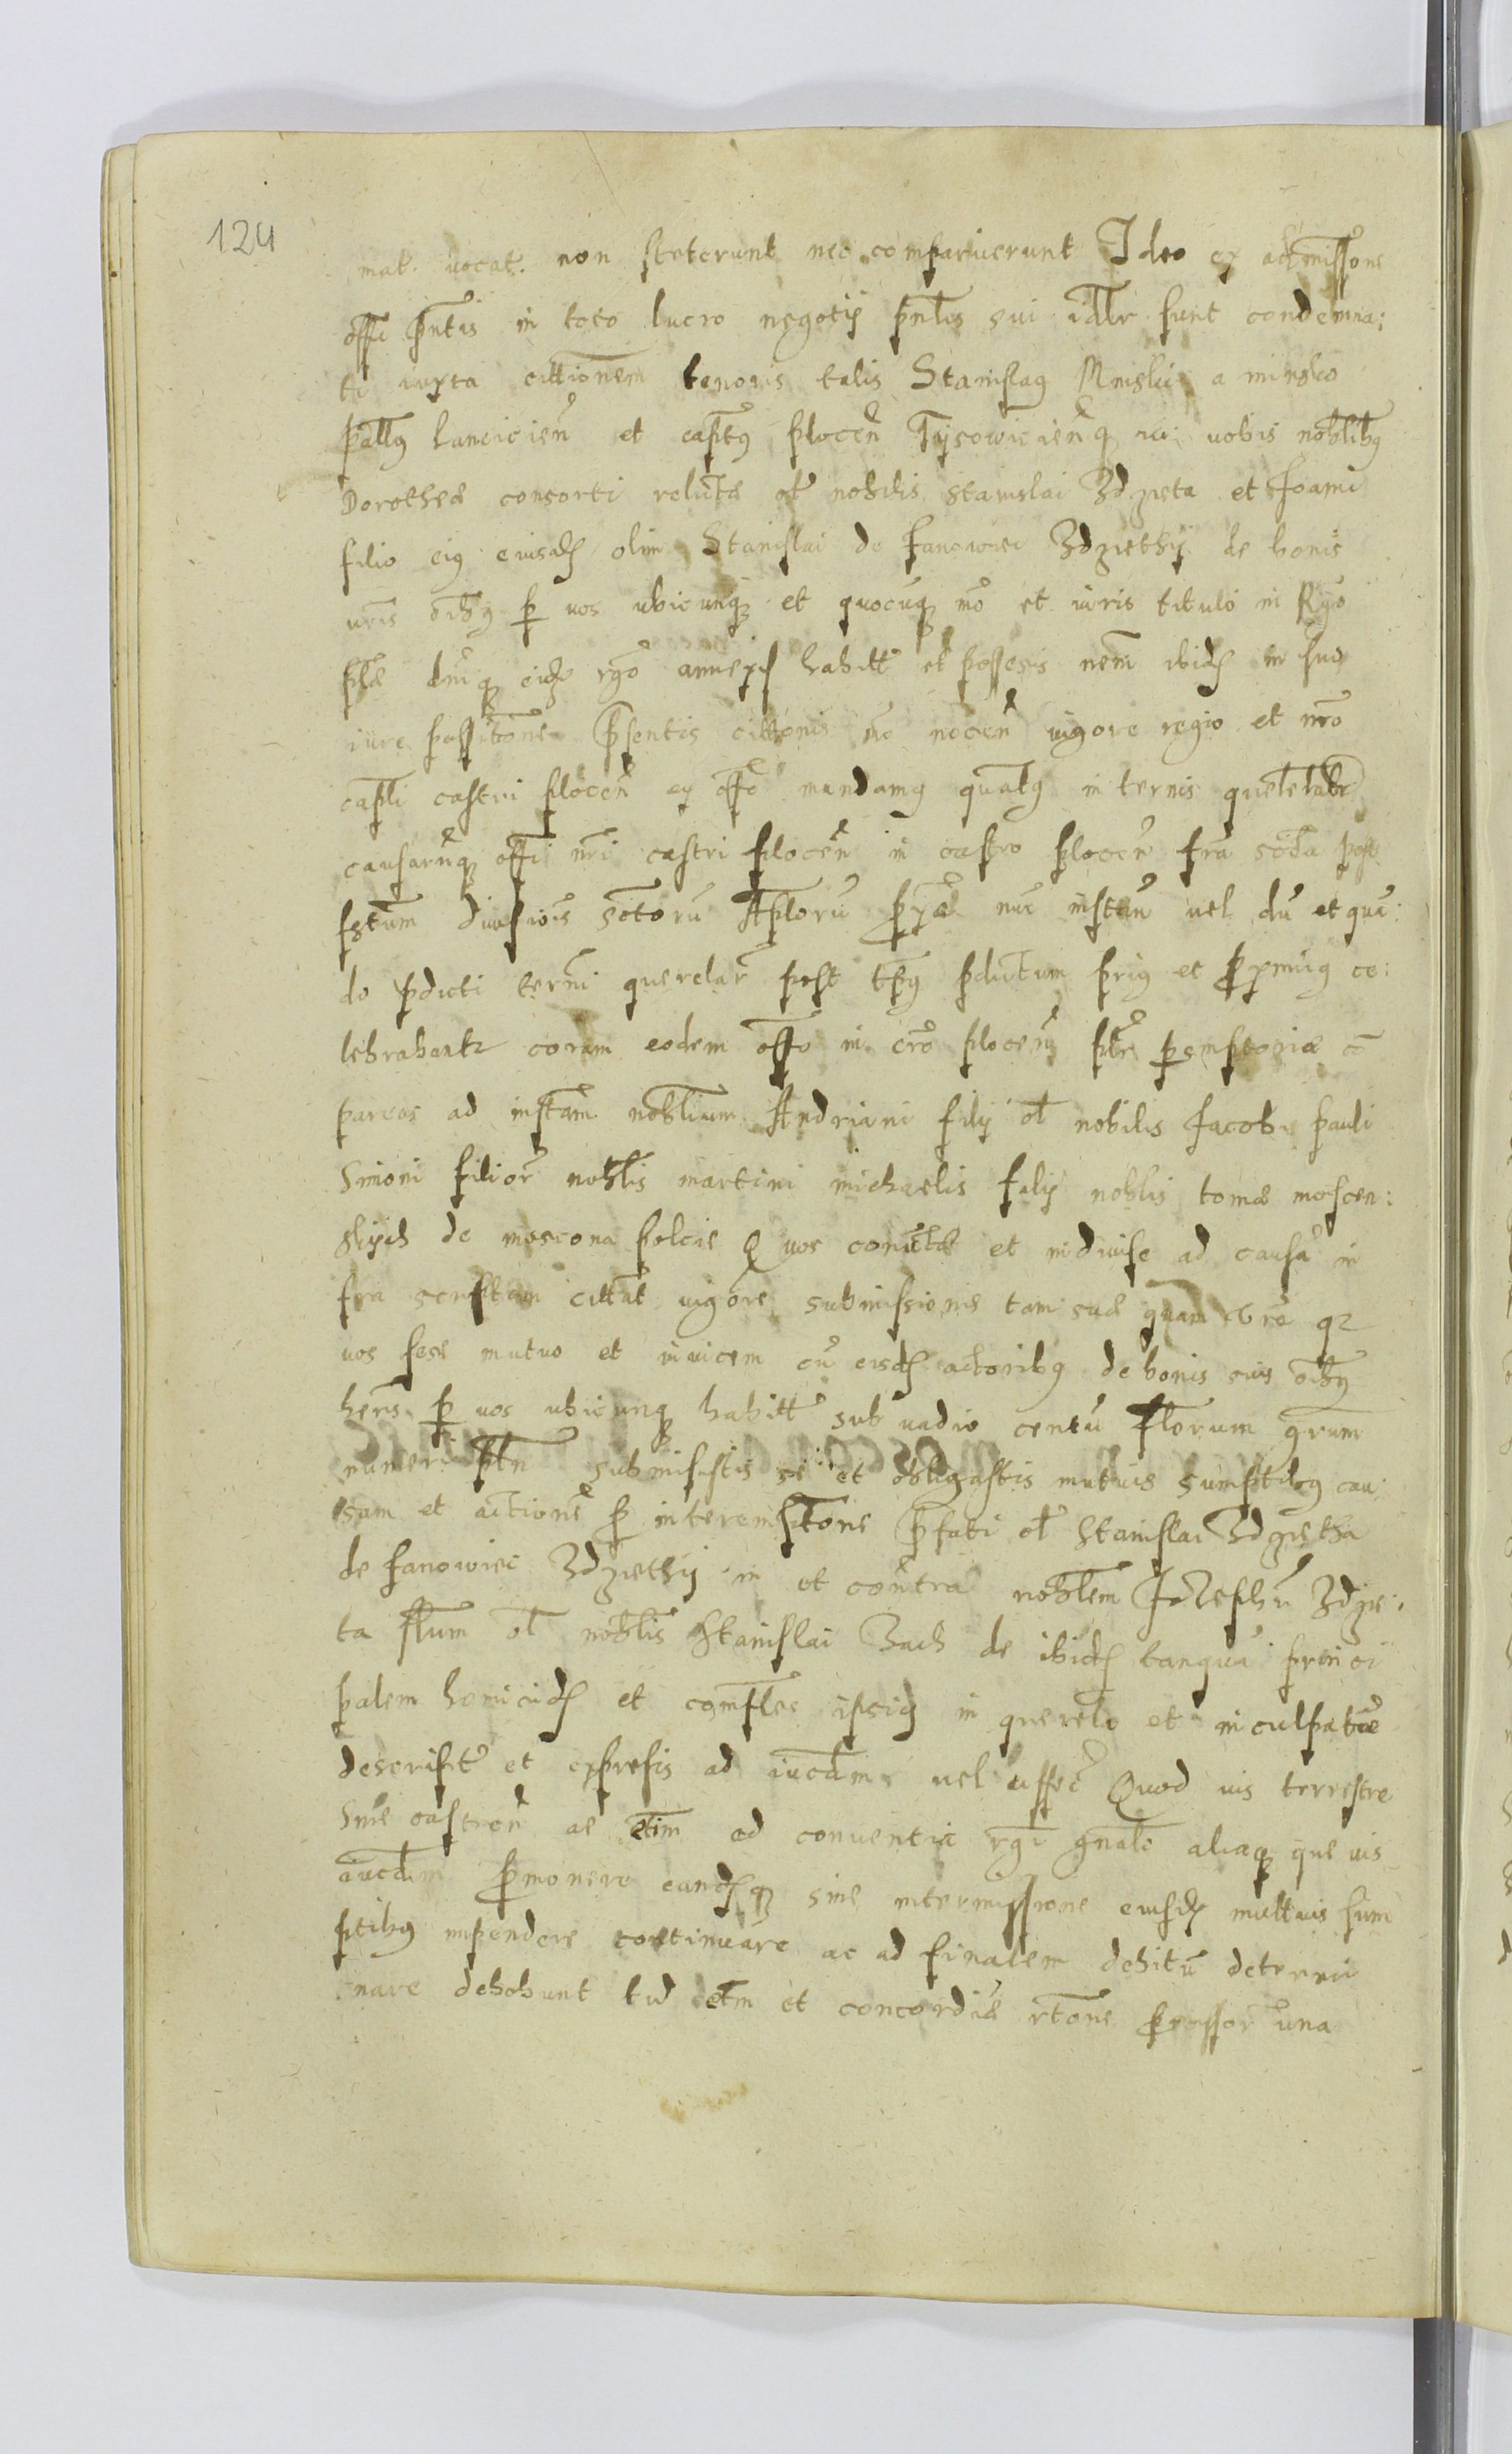 124
mat. vocat. non steterunt nec comparuerunt Ideo ex admissone
offi pntis in toto lucro negotij pntis sui idtr sunt condemna:
ti iuxta cittionem tenoris talis Stanislaq Minskij a minsko
pallq Lancicien et captq plocen Tÿsowicienq ia: vobis noblibq
Dorotheæ consorti relictæ ol nobilis Stanislai Zdzieta et Joanni
filio eiq eiusd olim Stanislai de Janowiec Zdziethij de bonis
vris oibq p vos ubicunq et quocuq mo et iuris titulo in Rgo
plæ dniq eidz rgo annexis habitt et possesis nem ibid in suo
iure possitione psentis cittonis mo nocen vigore regio et nro
capli castri plocen ex offo mandamq quatq in ternis querelar
causarumq offi nri castri plocen in castro plocen fra scda post
festum diuisiois sctoru Aploru px nuc instan vel du et qua:
do pdicti terni querelar post tpq pdictum priq et pximiq ce:
lebrabantr coram eodem offo in cro plocen pltr pemptoriæ co
pareas ad instam noblium Andriani filij ol nobilis Jacobi pauli
Simoni filior noblis martini michaelis filij noblis tomæ moscen:
skych de moscona folcie Q vos coniuctæ et indiuise ad causa in
fra scriptam cittat vigore submissionis tam suæ quam vræ qz
vos sese mutuo et inuicem cu eisd actoribq de bonis suis oibq
heris p vos ubicunq habitt sub vadio centu florum grum
numeri pln submisistis se et obligastis mutuis sumptibq cau:
sam et actione p interemptione pfati ol Stanislai Zdzietha
de Janowiec Zdziethij in et contra noblem Josephu Zdzie:
ta flum ol noblis Stanislai Zach de ibid tanqua princi
palem homicid et complces ipsiq in querela et inculpatæ
descript et expresis ad iucdm vel affec Quod uis terrestre
siue castren ac etim ad conuentia rgi gnale aliaq que uis
iucdm pmonere eandq sine intermissione eiusd mutuis sum
ptibq inpendere continuare ac ad finalem debitu determi
nare debebunt tud etm et concordiæ rtone pcessor una